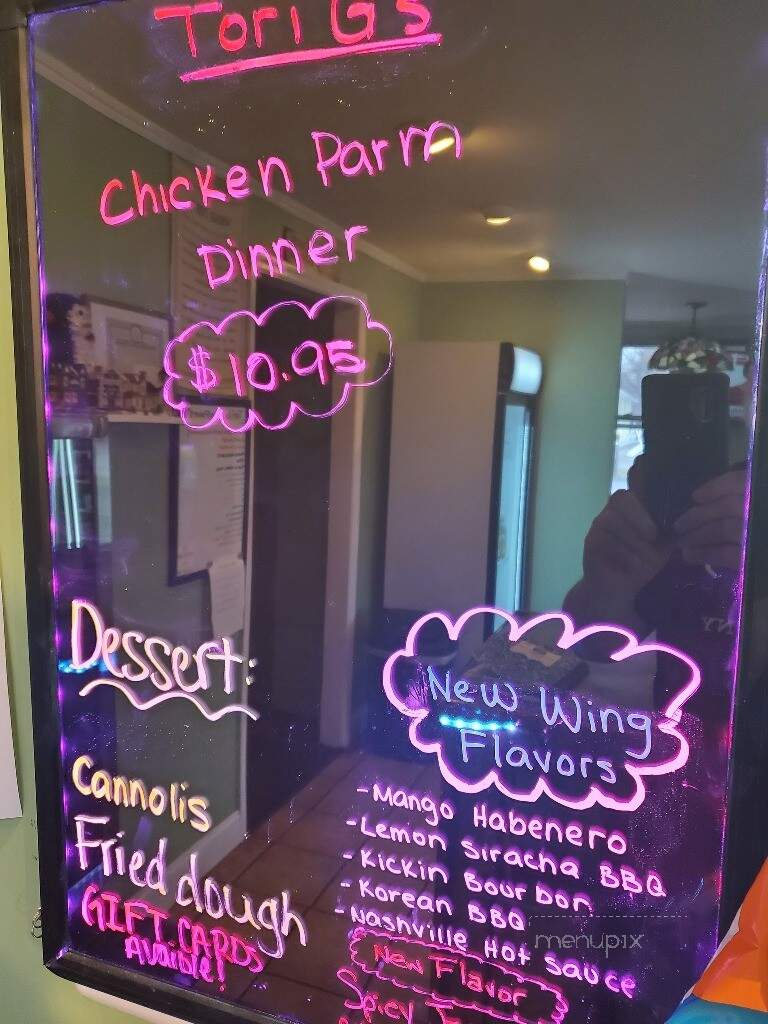 Tori Gs
Chicken Parm
Dinner
$10.95
Dessert:
Cannolis
Fried dough
GIFT CARDS
Avaible!
New Wing
Flavors
-Mango Habenero
-Lemon Siracha BBQ
-Kickin Bourbon
-Korean BBQ
-Nashville Hot Sauce
New Flavor
Spicy
menupix